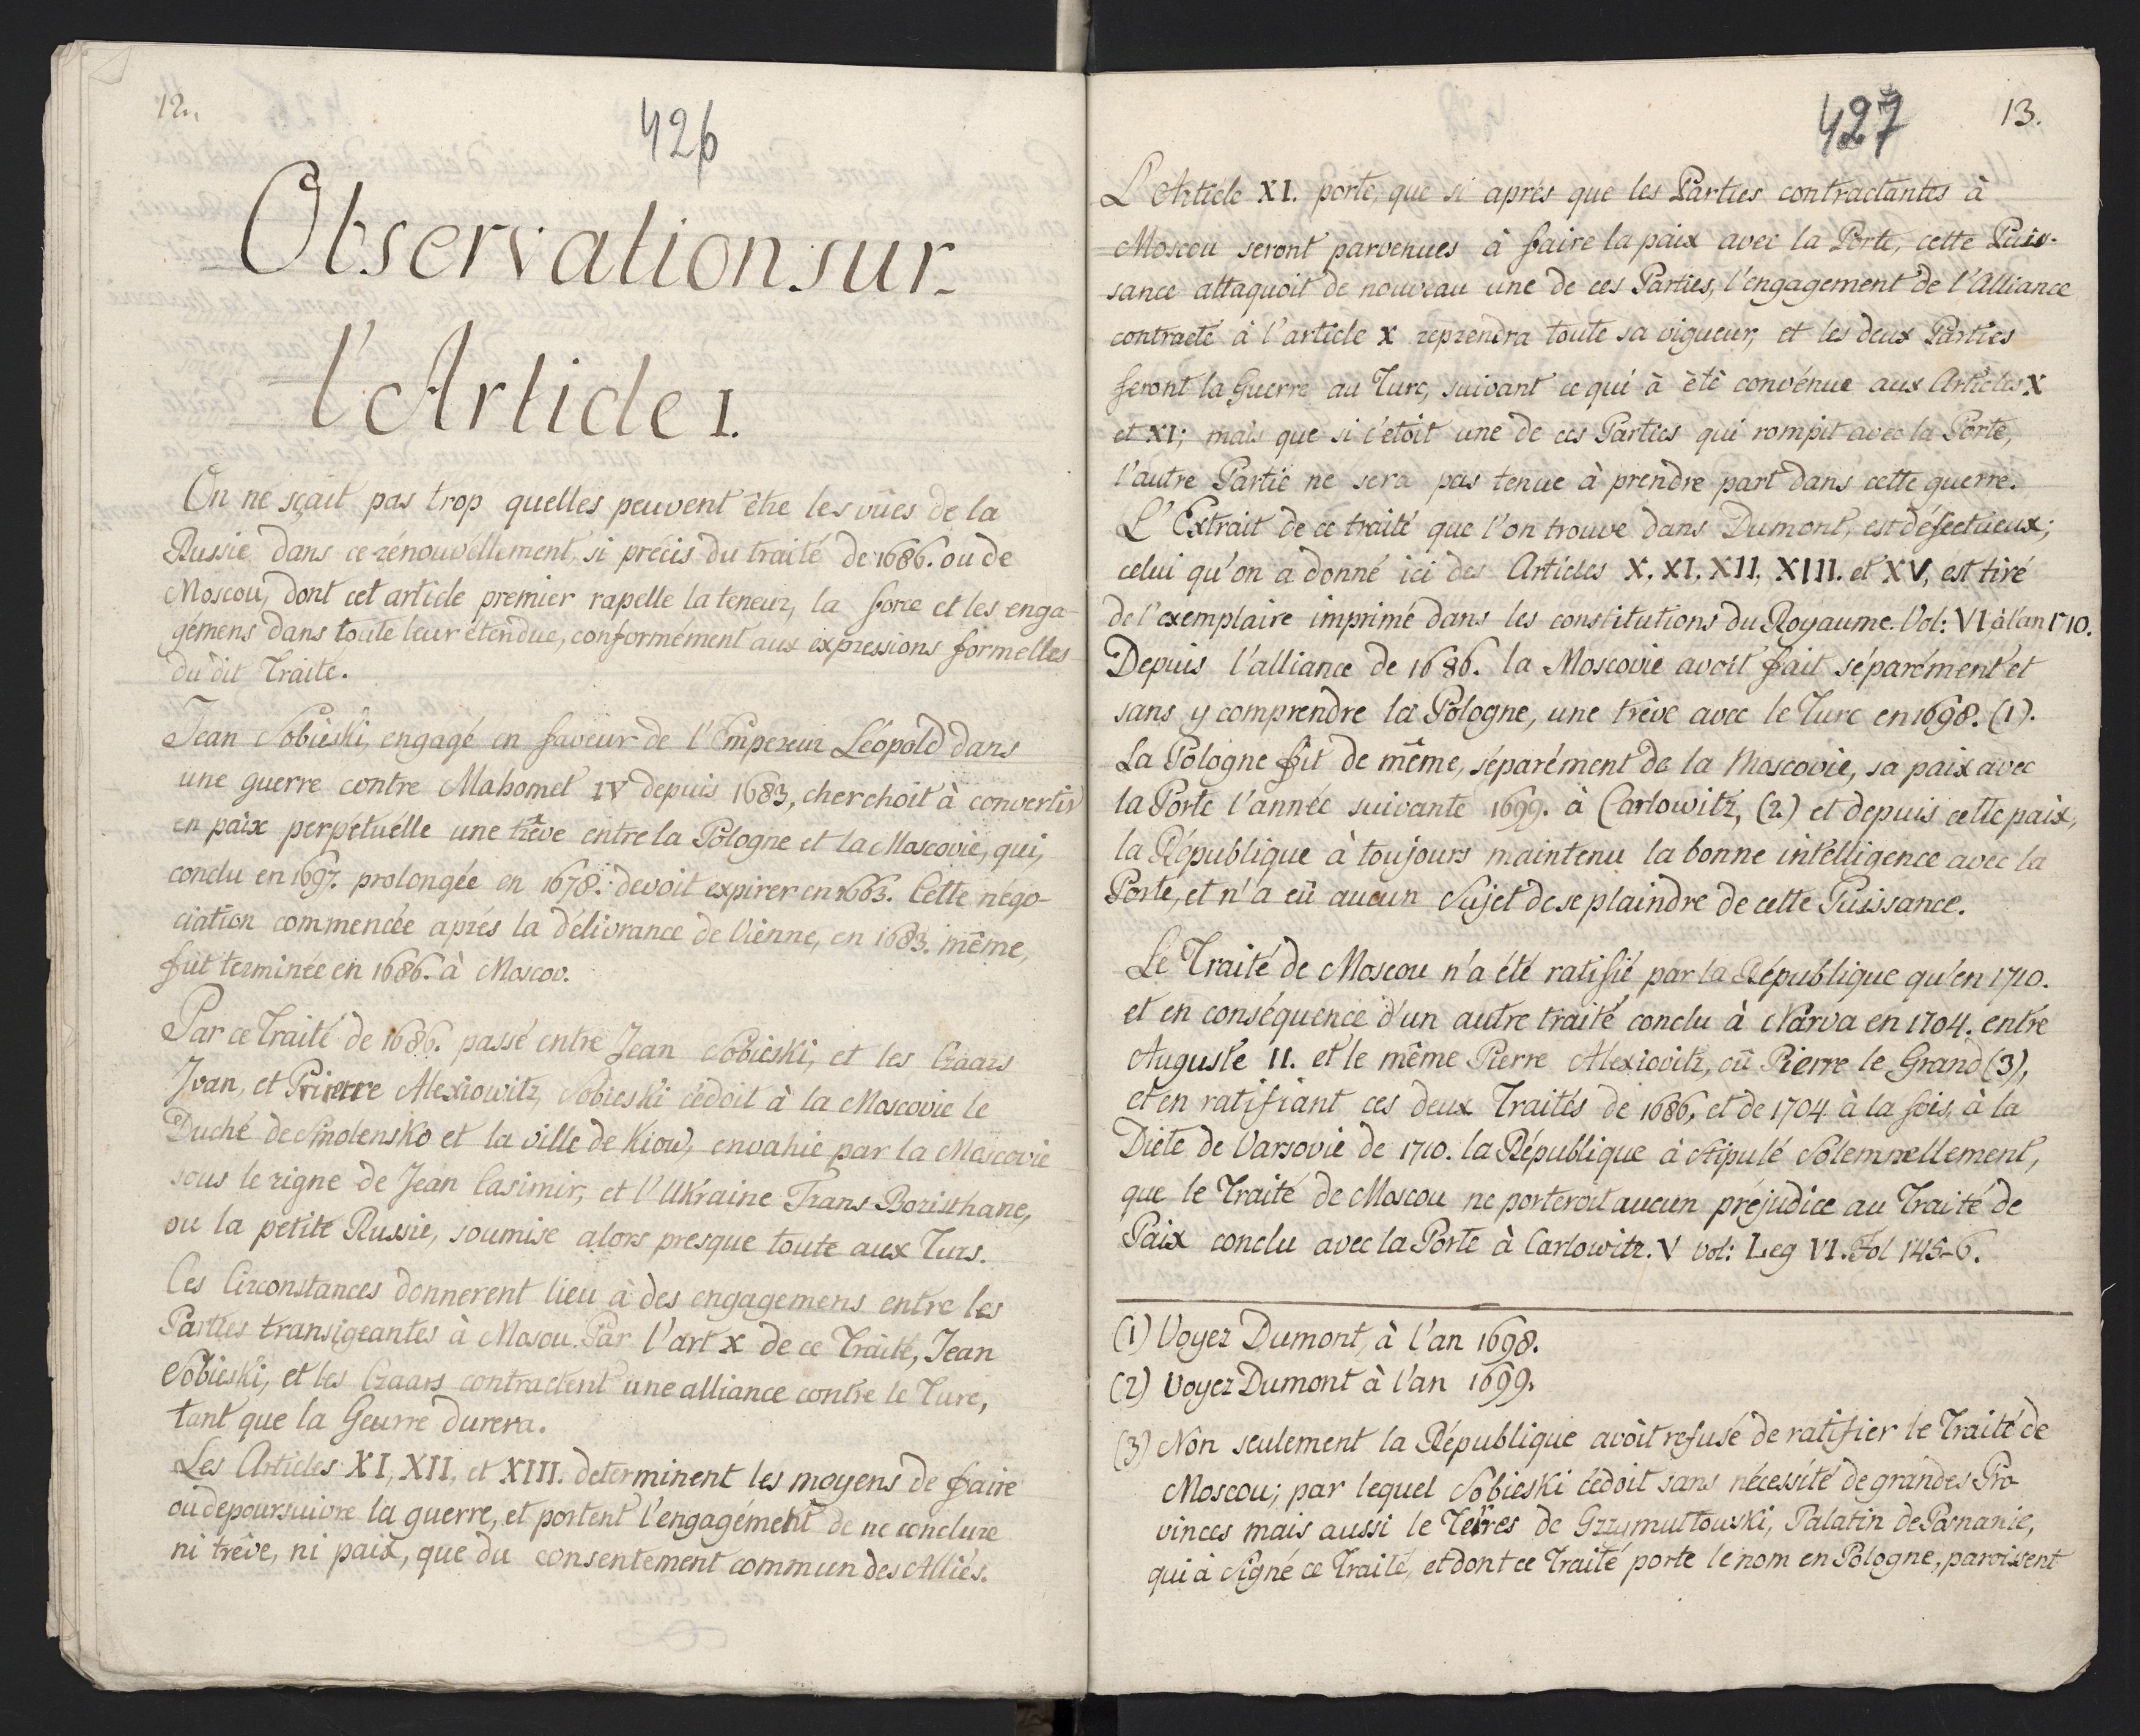 12.
426
Observation sur
l'Article I.
On ne sçait pas trop quelles peuvent être les vües de la
Russie dans ce rénouvellement, si précis du traité de 1686. ou de
Moscou, dont cet article premier rapelle la teneur, la force et les enga-
gémens dans toute leur étendue, conformément aux expressions formelles
du dit Traite.
Jean Sobieski, engagé en faveur de l'Empereur Léopold dans
une guerre contre Mahomet IV depuis 1683, cherchoit à convertir
en paix perpétuélle une trêve entre la Pologne et la Moscovie, qui,
conclu en 1697. prolongée en 1678. devoit expirer en 1663. Cette négo-
ciation commencée aprés la délivrance de Viènne, en 1683. même,
fut terminée en 1686. à Moscov.
Par ce Traité de 1686. passé entre Jean Sobieski, et les Czaars
Jvan, et Prierre Alexiowitz, Sobieski cédoit à la Moscovie le
Duché de Smolensko et la ville de Kiow, envahie par la Moscovie
sous le rigne de Jean Casimir, et l'Ukraine Trans-Boristhane,
ou la petite Russie, soumise alors presque toute aux Turs.
Ces Circonstances donnerent lieu à des engagemens entre les
Parties transigeantes à Moscou. Par l'art X de ce Traité, Jean
Sobieski, et les Czaars contractent une alliance contre le Turc,
tant que la Geurre durera.
Les Articles XI, XII, et XIII. determinent les moyens de faire
ou de poursuivre la guerre, et portent l'engagément de ne conclure
ni trêve, ni paix, que du consentement commun des Alliés.
427
13.
L'Article XI. porte, que si aprés que les Parties contractantes à
Moscou seront parvenues à faire la paix avec la Porte, cette Puis-
sance attaquoit de nouveau une de ces Parties, l'engagement de l'Alliance
contracté à l'article X reprendra toute sa vigueur, et les deux Parties
feront la Guerre au Turc, suivant ce qui à èté convénue aux Articles X
et XI; mais que si c'étoit une de ces Parties qui rompit avec la Porte,
l'autre Partie ne sera pas tenue à prendre part dans cette guerre.
L'Extrait de ce traité que l'on trouve dans Dumont, est défectueux;
celui qu'on a donné ici des Articles X. XI. XII. XIII. et XV, est tiré
de l'exemplaire imprimé dans les constitutions du Royaume. Vol: VI à l'an 1710.
Depuis l'alliance de 1686. la Moscovie avoit fait séparément et
sans y comprendre la Pologne, une trêve avec le Turc en 1698. (1).
La Pologne fit de même, séparément de la Moscovie, sa paix avec
la Porte l'année suivante 1699. à Carlowitz, (2.) et depuis cette paix,
la République à toujours maintenu la bonne intelligence avec la
Porte, et n'a eü aucun Sujet de se plaindre de cette Puissance.
Le Traité de Moscou n'a été ratifié par la République qu'en 1710.
et en conséquence d'un autre traité conclu à Narva en 1704. entre
Auguste II. et le même Pierre Alexiovitz, oû Pierre le Grand (3),
et en ratifiant ces deux Traités de 1686, et de 1704 à la fois, à la
Diéte de Varsovie de 1710. la République à stipulé Solemnellement,
que le Traité de Moscou ne porteroit aucun préjudice au Traité de
Paix conclu avec la Porte à Carlowitz. V vol: Leg VI. Fol 145-6.
(1) Voyez Dumont, à l'an 1698.
(2) Voyez Dumont à l'an 1699.
(3) Non seulement la République avoit refusé de ratifier le Traité de
Moscou; par lequel Sobieski cédoit sans nécessité de grandes Pro
vinces mais aussi le Terres de Grzymultouski, Palatin de Posnanie,
qui à Signé ce Traité, et dont ce Traité porte le nom en Pologne, paroissent